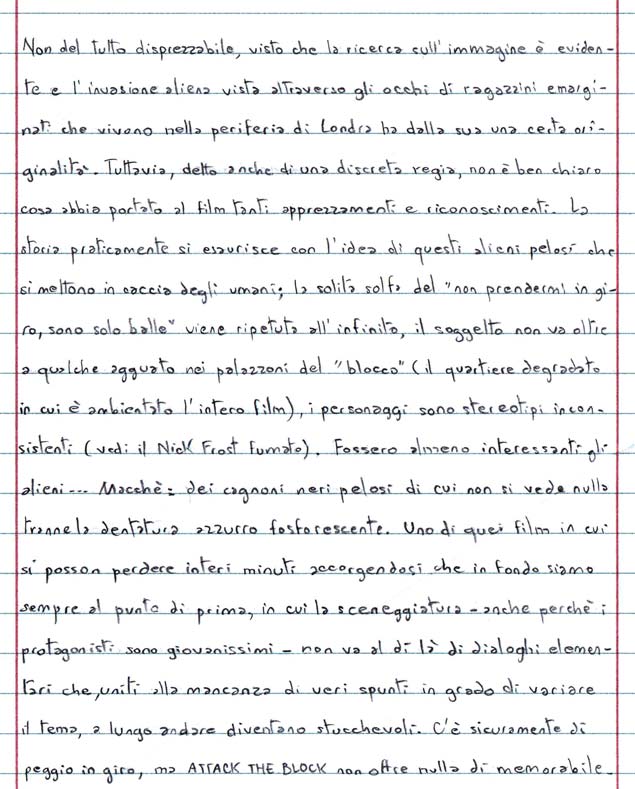 Non del tutto disprezzabile, visto che la ricerca sull'immagine è eviden-
te e l'invasione aliena vista attraverso gli occhi di ragazzini emargi-
nati che vivono nella periferia di Londra ha dalla sua una certa ori-
ginalità. Tuttavia, detto anche di una discreta regia, non è ben chiaro
cosa abbia portato al film tanti apprezzamenti e riconoscimenti. La
storia praticamente si esaurisce con l'idea di questi alieni pelosi che
si mettono in caccia degli umani; la solita solfa del "non prendermi in gi-
ro, sono solo balle" viene ripetuta all'infinito, il soggetto non va oltre
a qualche agguato nei palazzoni del "blocco" (il quartiere degradato
in cui è ambientato l'intero film), i personaggi sono stereotipi incon-
sistenti (vedi il Nick Frost fumato). Fossero almeno interessanti gli
alieni... Macchè: dei cagnoni neri pelosi di cui non si vede nulla
tranne la dentatura azzurro fosforescente. Uno di quei film in cui
si posson perdere interi minuti accorgendosi che in fondo siamo
sempre al punto di prima, in cui la sceneggiatura - anche perchè i
protagonisti sono giovanissimi - non va al di là di dialoghi elemen-
tari che, uniti alla mancanza di veri spunti in grado di variare
il tema, a lungo andare diventano stucchevoli. C'è sicuramente di
peggio in giro, ma ATTACK THE BLOCK non offre nulla di memorabile.